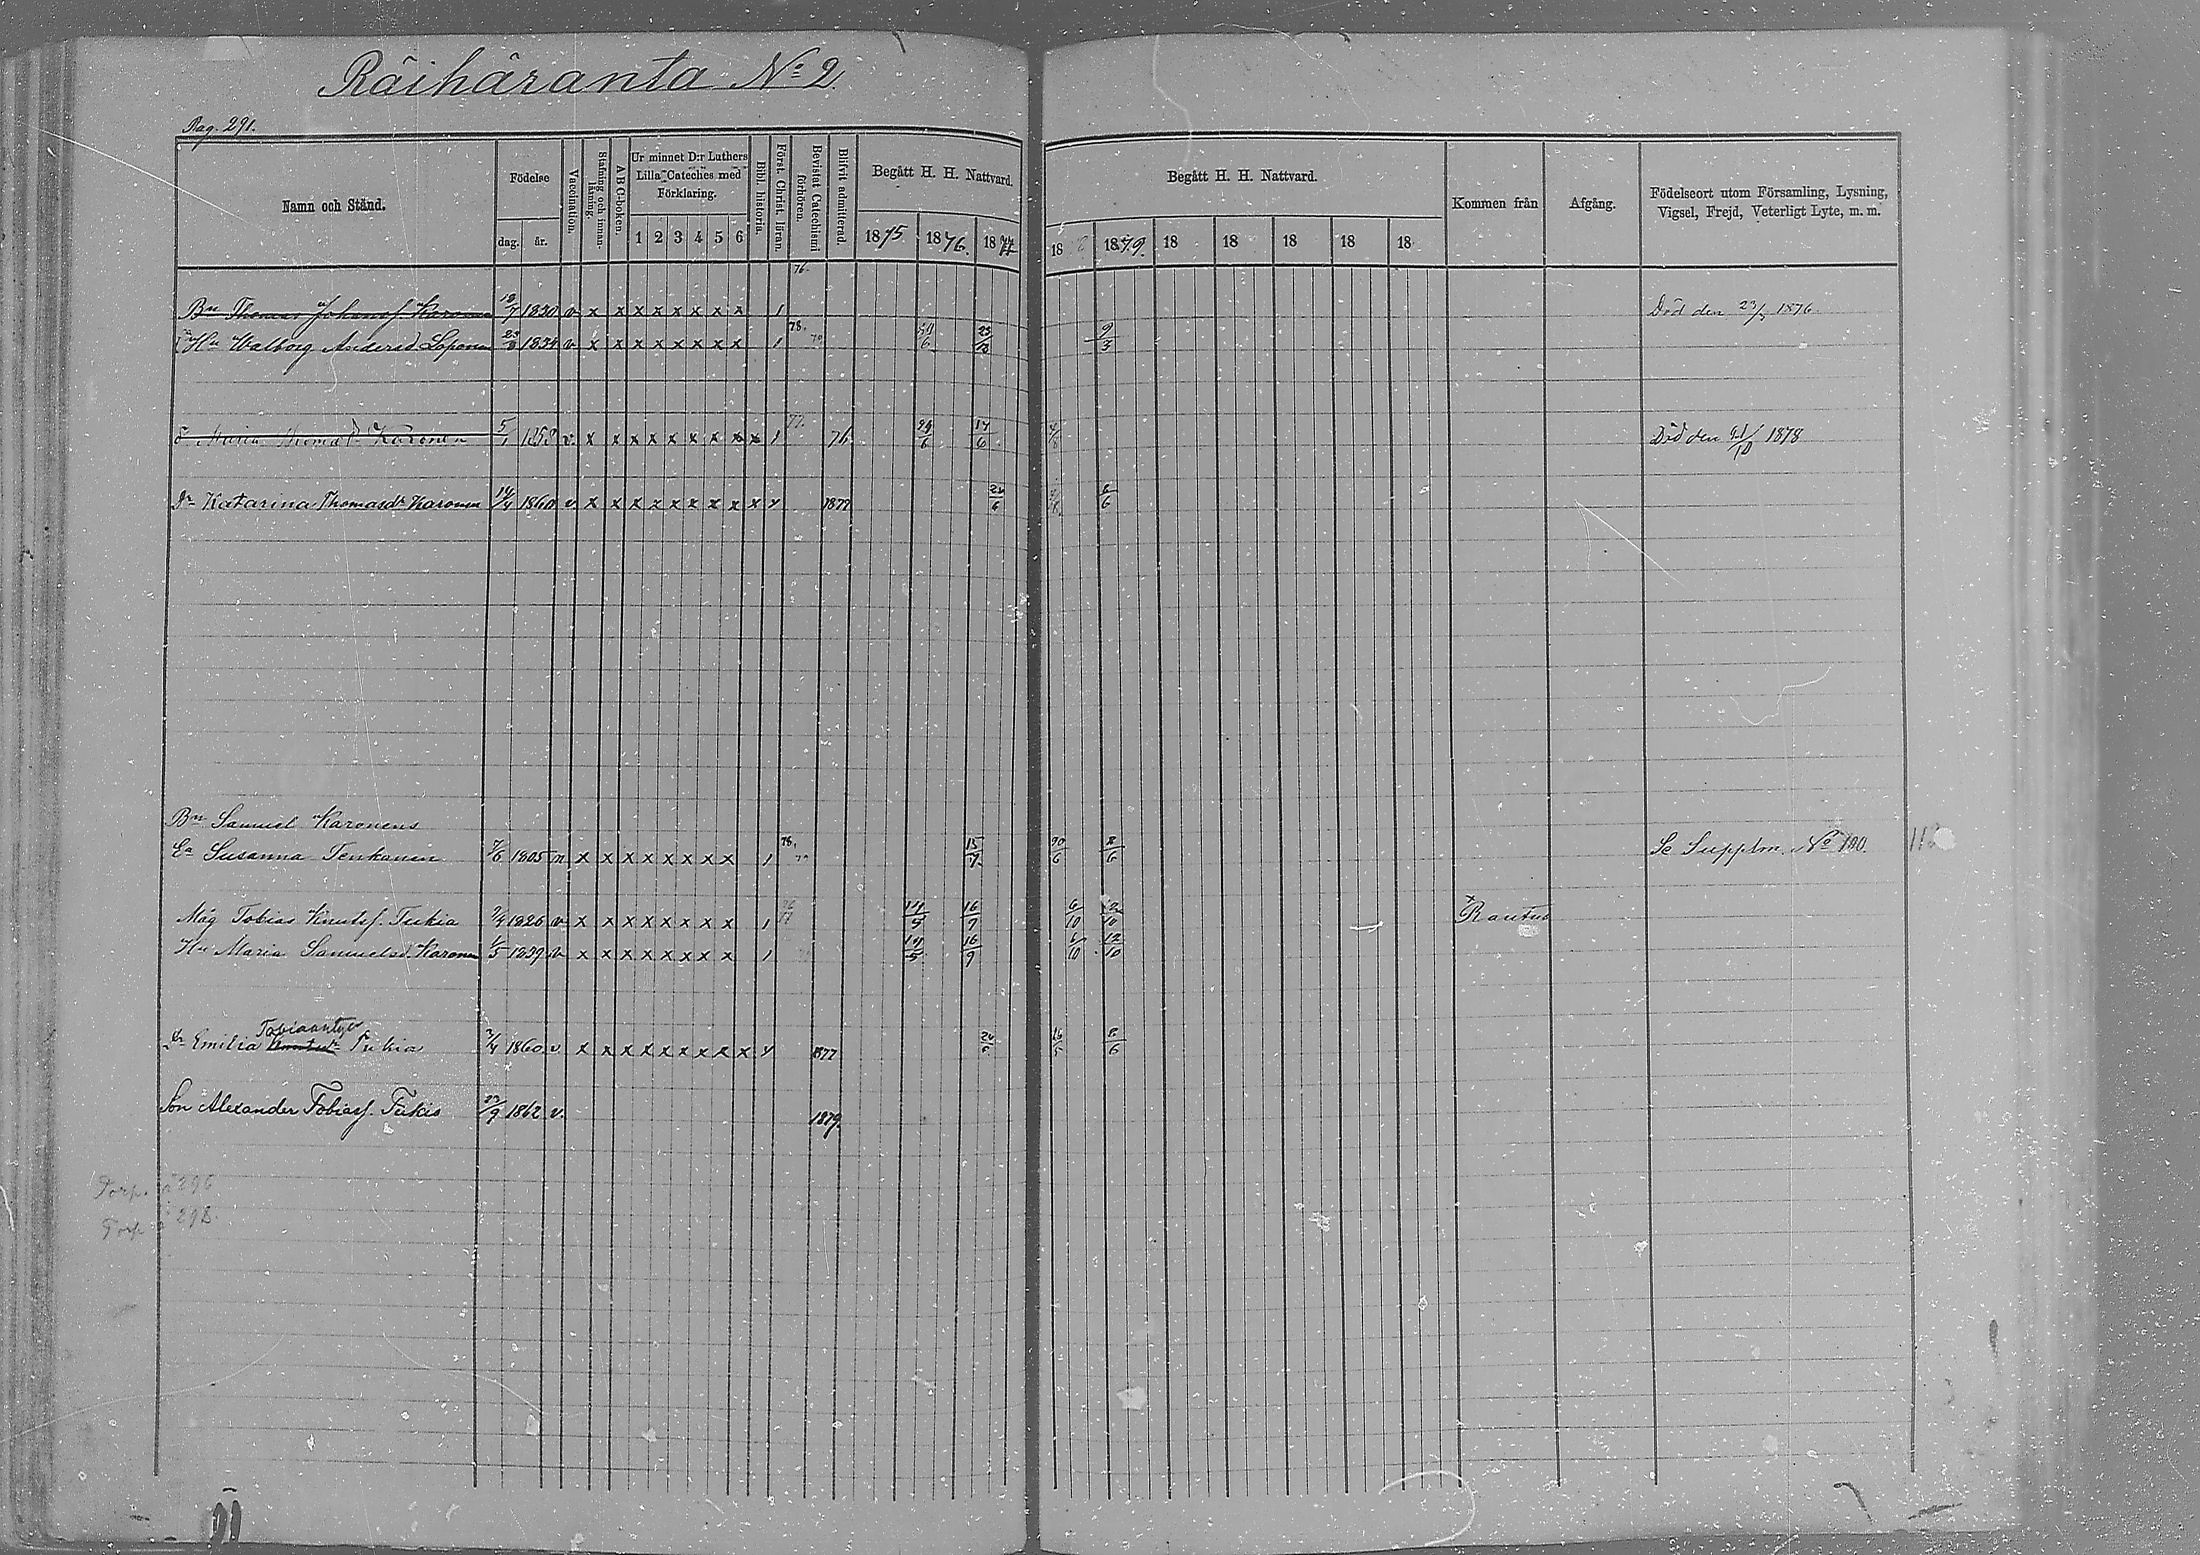 Räihäranta No 2.
Pag. 291.
Namn och Stånd.
Födelse
dag. år.
Vaccination.
Stafning och innan läsning.
A B C-boken.
Ur minnet D:r Luthers Lilla Cateches med Förklaring.
1 2 3 4 5 6
Bibl. historia.
Först. Christ. läran.
Bevistat Catechismi förhören.
Blifvit admitterad.
Begått H. H. Nattvard.
1875. 1876. 1877
Begått H. H. Nattvard.
18 1879. 18 18 18 18 18
Kommen från
Afgång.
Födelseort utom Församling, Lysning, Vigsel, Frejd, Veterligt Lyte, m. m.
76.
Bn Thomas Johansf Karonen 18/7 1830 v x x x x x x x x 1 Död den 1876
Hu Walborg Andersd Loponen 23/8 1834 v x x x x x x x x 1 78. 9/3
Maria Thomasdr Karonen 5/1 v x x x x x x x x x 1 77. 76 29/6 17/6 Död den 1878
Dr Katarina Thomasdr Karonen 14/4 1860 v x x x x x x x x x y 1877 24/6 8/6
Bn Samuel Karonens
Ea Susanna Tenkanen 7/6 1805 n x x x x x x x x 1 78. 15/7. 30/6 8/6 Se Supplm. No 100. 112
Måg Tobias Knutsf. Tukia 7/4 1826 v x x x x x x x x 1 14/5 16/9 6/10 12/10 Rautus
Hu Maria Samuelsd. Karonen 1/5 1839 v x x x x x x x x 1 14/5 16/9 6/10 12/10
Tobiaantyär
Dr Emilia Tukia 3/4 1860 v x x x x x x x x x y 1877 16/5 8/6
Son Alexander Tobiasf. Tukia 23/9 1862 v. 1879
Torp. å 296
Torp å 298.